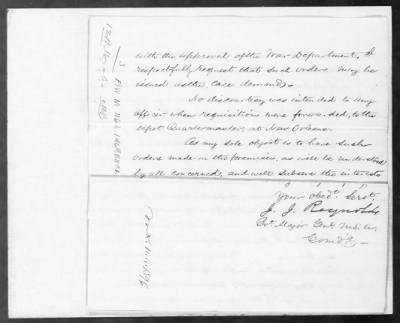 with the approval of the War Department, I
respectfully request that such orders may be
issued as the case demands.
No discourtesy was intended to any
officer when requisitions were forwarded, to the
Depot Quartermaster, at New Orleans.
As my sole object is to have such
orders made in the premises, as will be understood
by all concerned, and will subserve the interests
Your obedt. Servt.
J. J. Reynolds
Bvt. Major Genl.
Comdg.